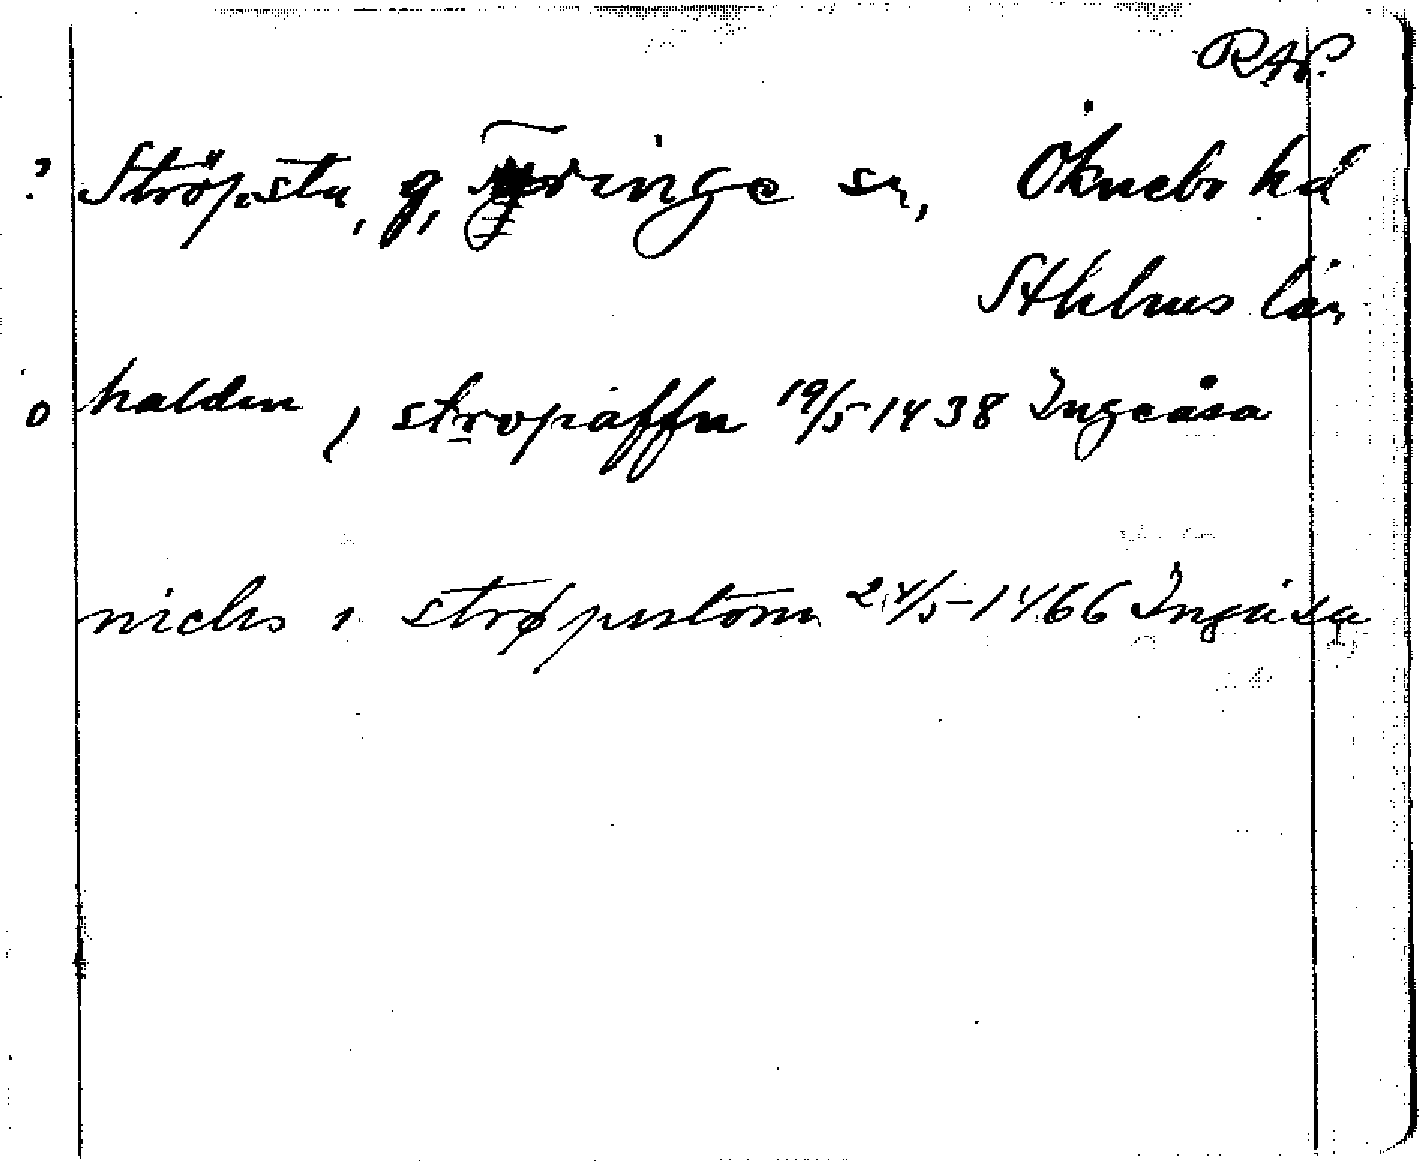 RAP.
? Ströpsta, g, Turinge sn, Öknebo hd
Sthlms län
o halden, i stropaffu 19/5 1438 Ingeåsa
niclis i strøpustom 24/5-1466 Ingåsa